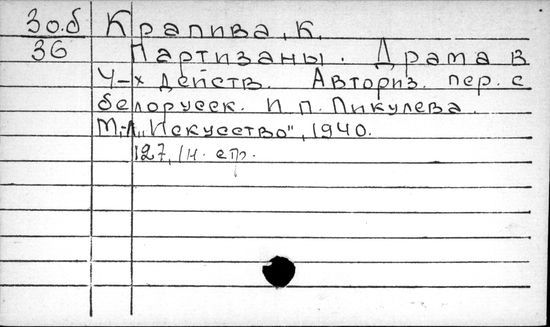 30.б Крапива, К.
36 Партизаны. Драма в
4-х действ. Авториз. пер. с
белорусск. И П. Пикулева.
М,-Л, "Искусство", 1940.
127, 1н. стр.